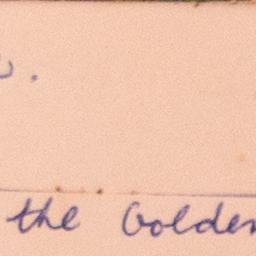 the Golden